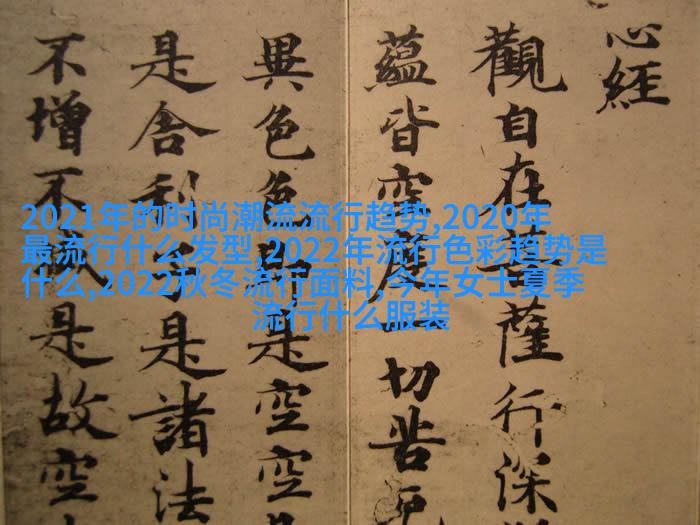 心經
觀自在菩薩行深
蘊皆空度一切苦厄
異色色即是空空
是舍利子是諸法
不增不減是故空
2021年的时尚潮流流行趋势,2020年
最流行什么发型,2022年流行色彩趋势是
什么,2022秋冬流行面料,今年女士夏季
流行什么服装